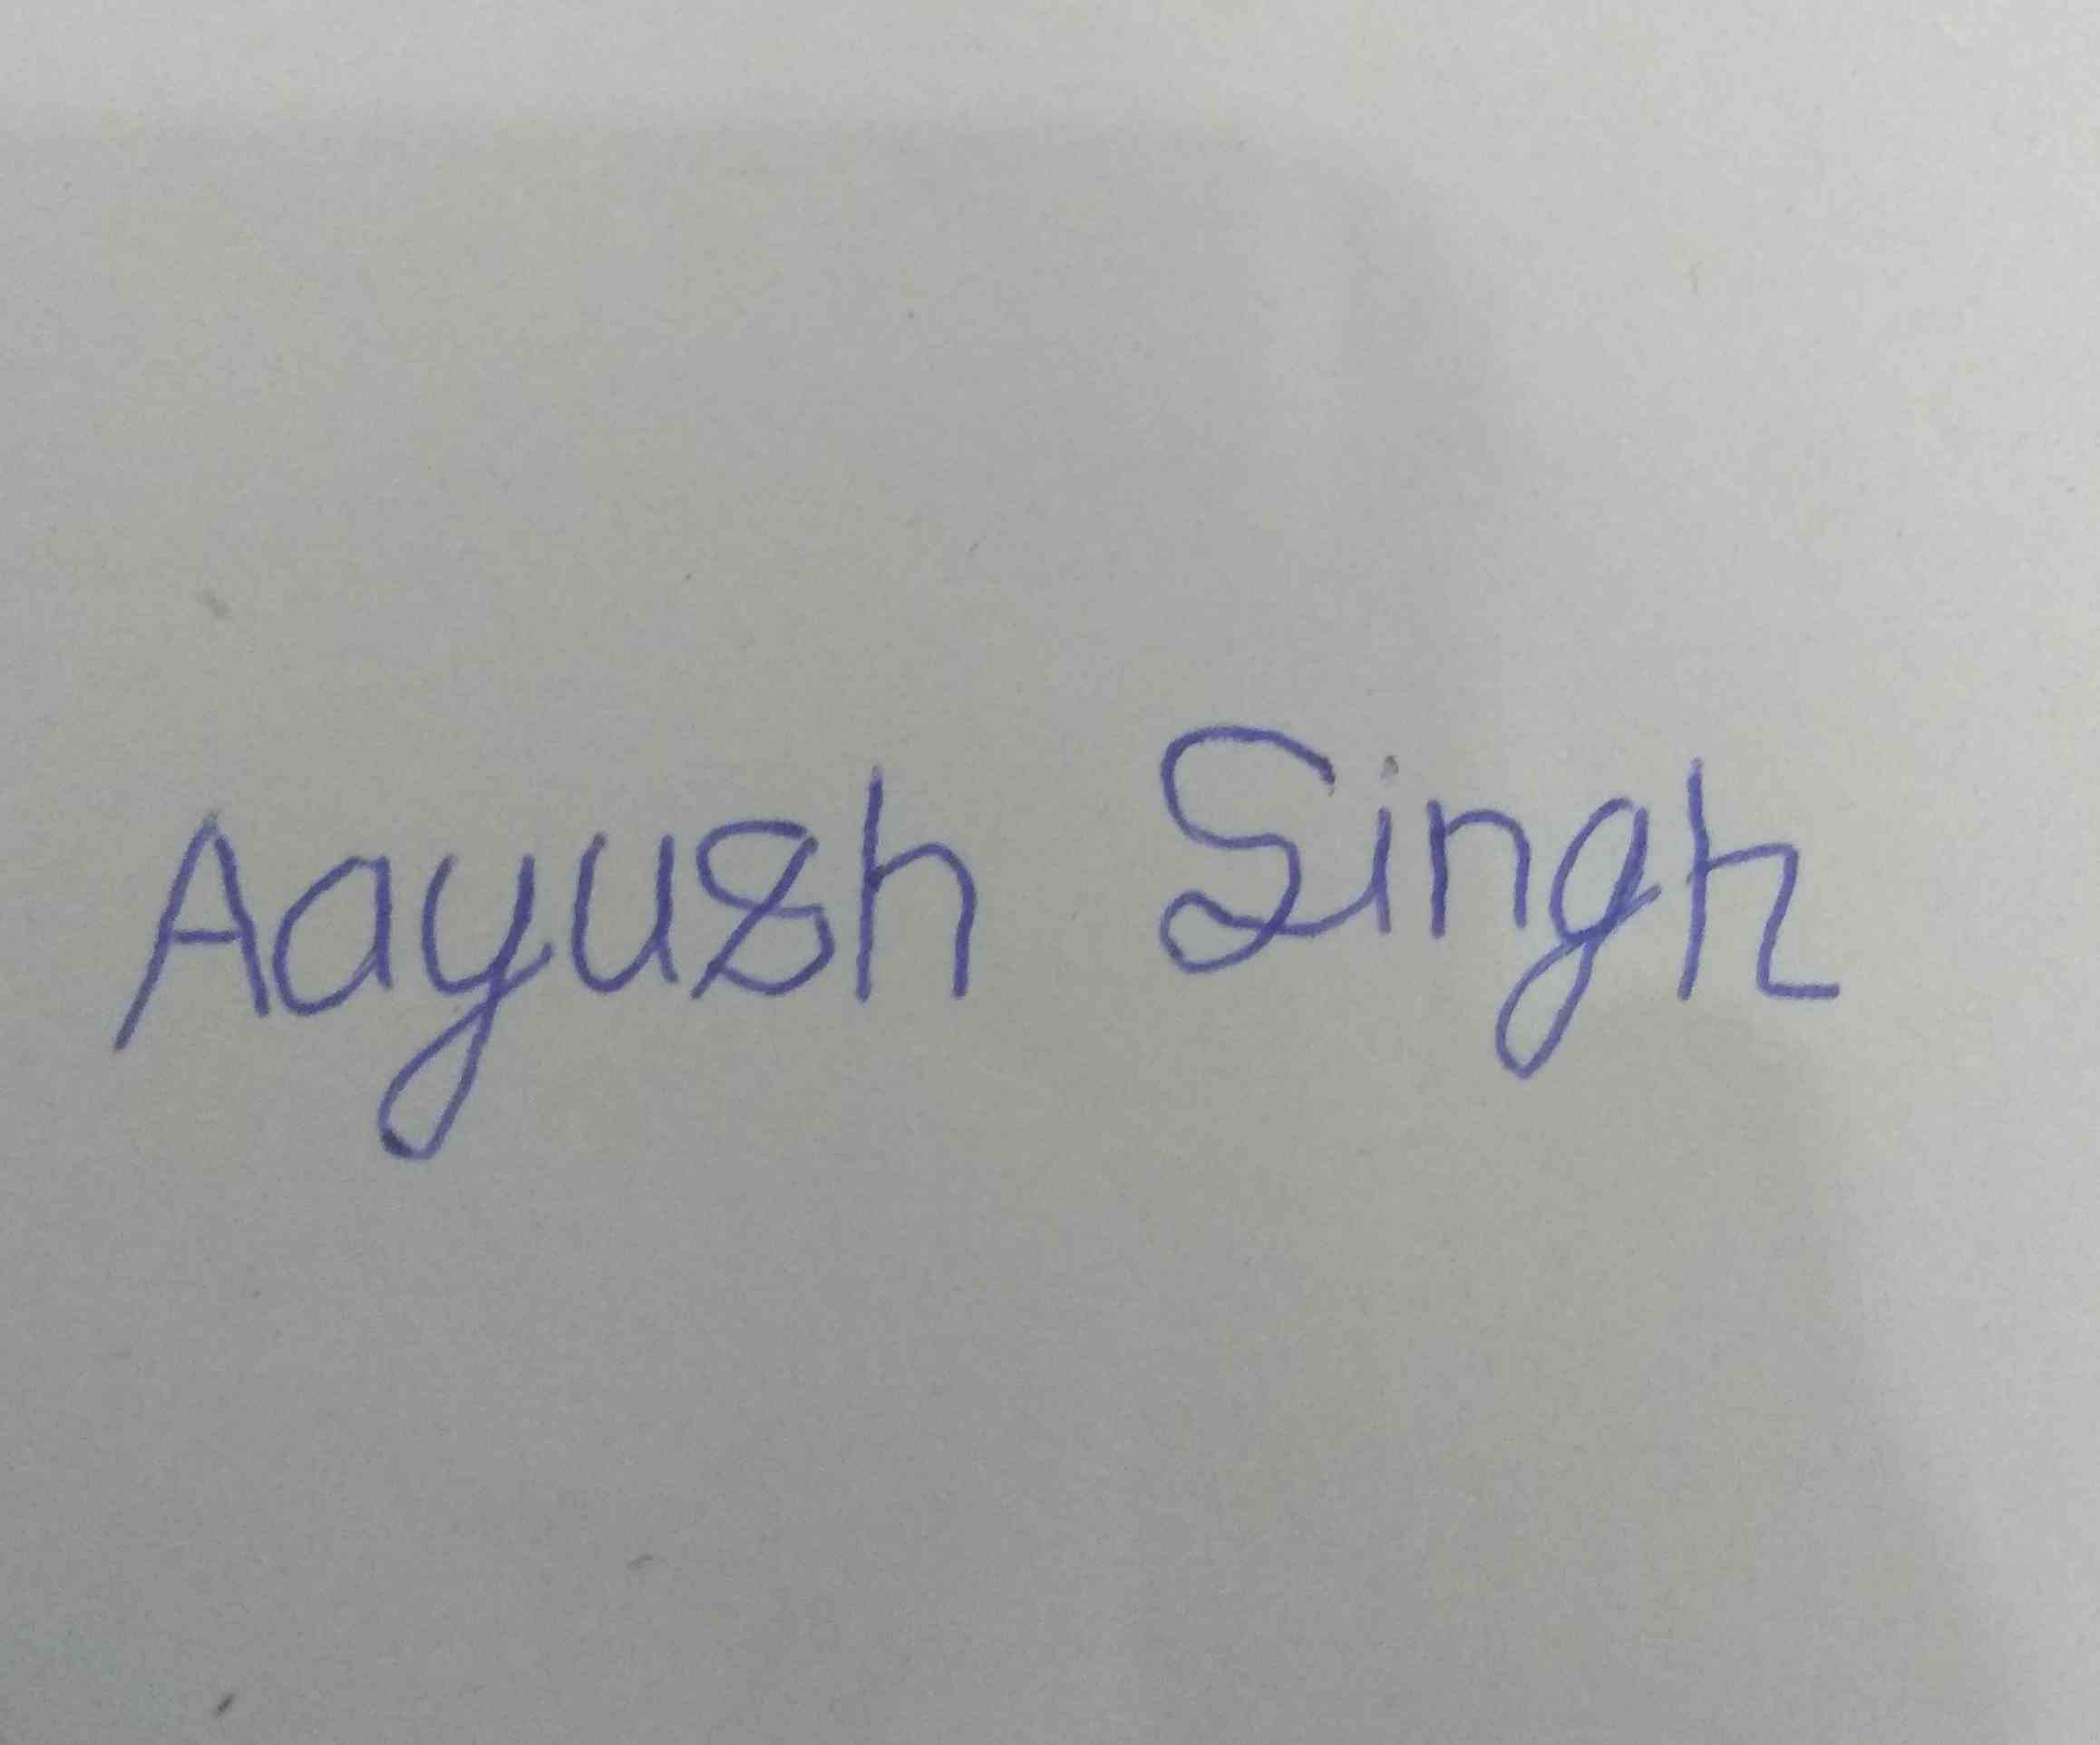 Aayush Singh